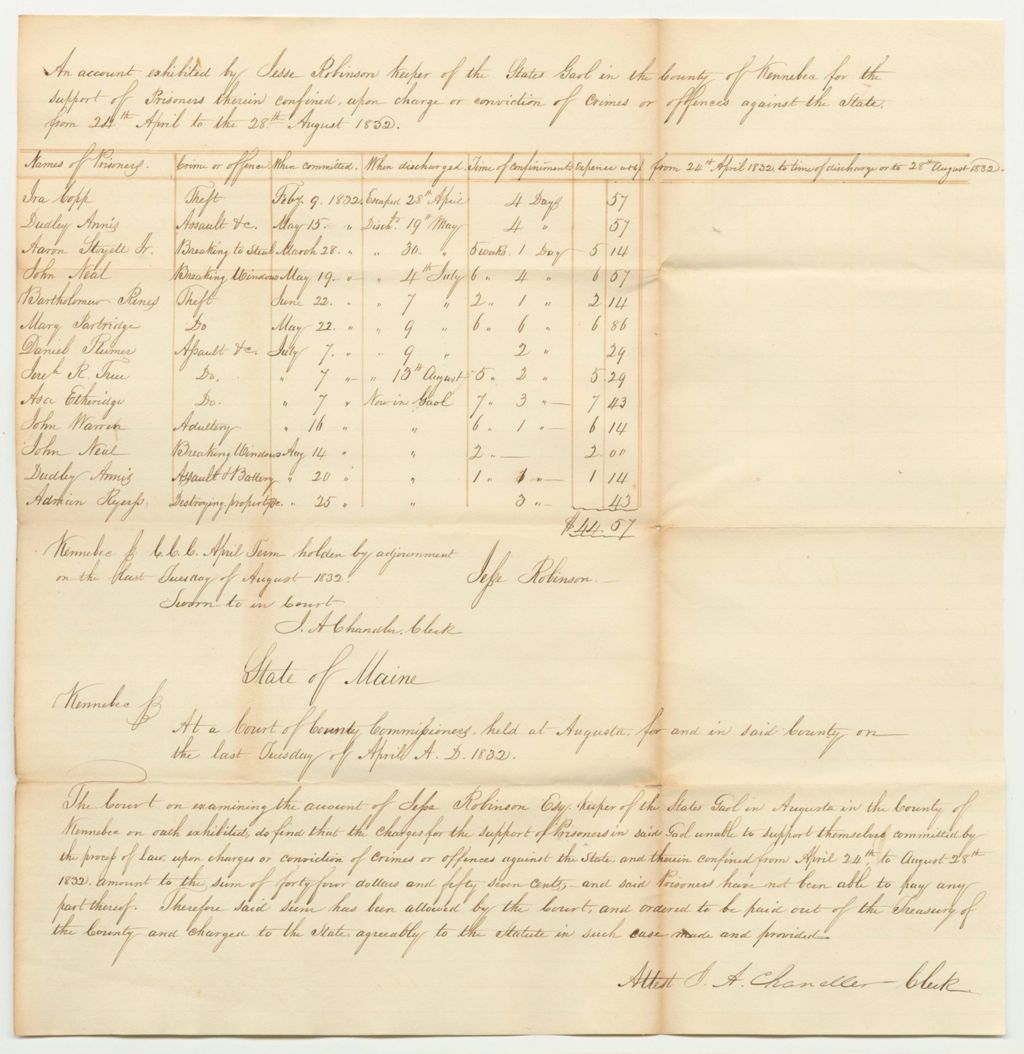 An account exhibited by Jesse Robinson Keeper of the States Gaol in the County of Kennebec for the
support of Prisoners therein confined, upon charge or conviction of Crimes or offences against the State,
from 24th April to the 28th August 1832.
Names of Prisoners. Crime or offence When committed. When discharged Time of confinement Expence at &c from 24th April 1832, to time of discharge or to 28th August 1832.
Ira Copp Theft Feby. 9. 1832. Escaped 28th April 4 Days 57
Dudley Annis Assault &c. May 15. " Disch. 19th May 4 " 57
Aaron Stoyell Jr. Breaking to Steal March 28. " " 30. " 5 weeks 1 Day 5 14
John Neal Breaking Windows May 19. " " 4th July 6 " 4 " 6 57
Bartholomew Rines Theft June 22. " " 7 " 2 " 1 " 2 14
Mary Partridge Do May 22. " " 9 " 6 " 6 " 6 86
Daniel Plumer Assault &c. July 7. " " 9 " 2 " 29
Jereh. R. True Do. " 7 " " 13th August 5 " 2 " 5 29
Asa Etheridge Do. " 7 " Now in Gaol 7 " 3 " 7 43
John Warren Adultery " 16 " " 6 " 1 " 6 14
John Neal Breaking Windows Aug 14 " " 2 " — 2 00
Dudley Annis Assault & Battery " 20 " " 1 " 1 " 1 14
Adrian Ryerss. Destroying property &c. " 25 " " 3 " 43
$44.57
Kennebec ss C. C. C. April Term holden by adjournment
on the last Tuesday of August 1832.
Jesse Robinson.
Sworn to in Court
J. A Chandler. Clerk
State of Maine
Kennebec ss
At a Court of County Commissioners, held at Augusta, for and in said County on
the last Tuesday of April A. D. 1832.
The Court on examining the account of Jesse Robinson Esq. keeper of the States Gaol in Augusta in the County of
Kennebec on oath exhibited, do find that the charges for the support of Prisoners in said Gaol unable to support themselves committed by
the process of law, upon charges or conviction of crimes or offences against the State, and therein confined from April 24th to August 28th
1832. amount to the sum of forty four dollars and fifty seven cents,— and said Prisoners have not been able to pay any
part thereof. Therefore said sum has been allowed by the Court, and ordered to be paid out of the Treasury of
the County and charged to the State agreeably to the Statute in such case made and provided
Attest J. A. Chandler Clerk